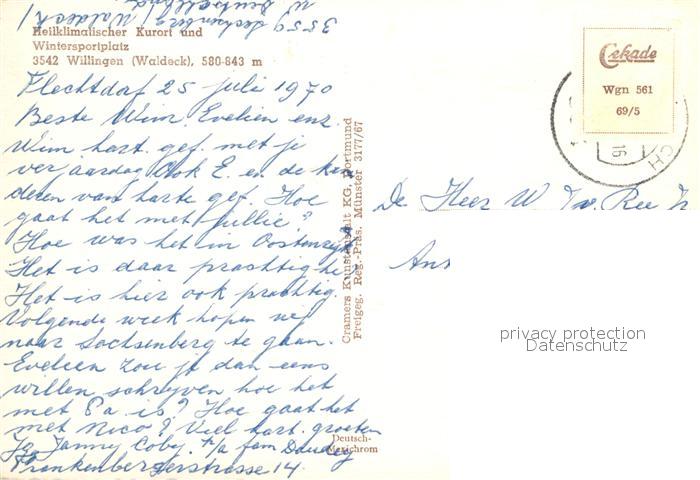 3559 Sachsenberg / Waldeck /
W Deutschland
Heilklimatischer Kurort und
Wintersportplatz
3542 Willingen (Waldeck), 580-843 m
Flechtdorf 25 juli 1970
Beste Wim, Evelien enz.
Wim hart. gef. met je
verjaardag Ook E. en de kin
deren van harte gef. Hoe
gaat het met jullie?
Hoe was het in Oostenrijk
Het is daar prachtig he
Het is hier ook prachtig.
Volgende week hopen wij
naar Sachsenberg te gaan.
Evelien zou je dan eens
willen schrijven hoe het
met Pa is? Hoe gaat het
met Nico? Viel hart. groeten
Jac Janny Coby. p/a fam
Frankenbergerstrasse 14.
Cramers Kunstanstalt KG, Dortmund
Freigeg. Reg.-Präs. Münster 3177/67
Deutsch-
Cekade
Wgn 561
69/5
16
CH
De Heer W v. Ree Jr
Ans
privacy protection
Datenschutz